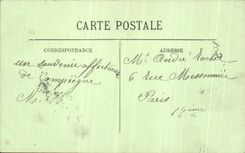 CARTE POSTALE
CORRESPONDANCE
ADRESSE
un souvenir affectueux
de Compiègne
M.
Mr André
6 rue Messonier
Paris
17ème